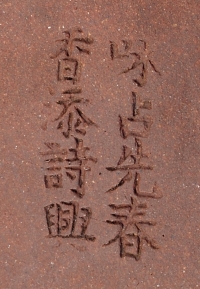 味占先春
香添詩興